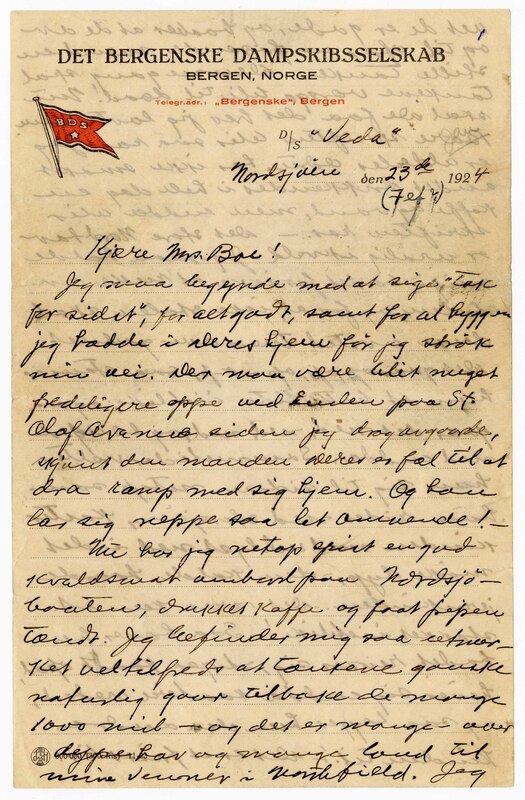 DET BERGENSKE DAMPSKIBSSELSKAB
BERGEN, NORGE
Telegr.adr.: „Bergenske", Bergen
BDS
D/S "Veda"
Nordsjöen den 23de 1924
Kjære Mrs. Boe!
Jeg maa begynde med at sige "tak
for sidst", for alt godt, samt for al hyggen
jeg hadde i deres hjem før jeg strök
min vei. Der maa være blit meget
fredeligere oppe ved Enden paa St.
Olaf Avenue siden jeg drog avgaarde,
skjönt den manden deres er fæl til at
dra ramp med sig hjem. Og han
lar sig neppe saa let omvende! –
Nu har jeg netop spist en god
kvældsmat ombord paa Nordsjö-
baaten, drukket kaffe og faat pipen
tændt. Jeg befinder mig saa utmær-
ket veltilfreds at tankene ganske
naturlig gaar tilbake de mange
1000 mil – og det er mange – over
hav og mange land til
mine venner i Northfield. Jeg